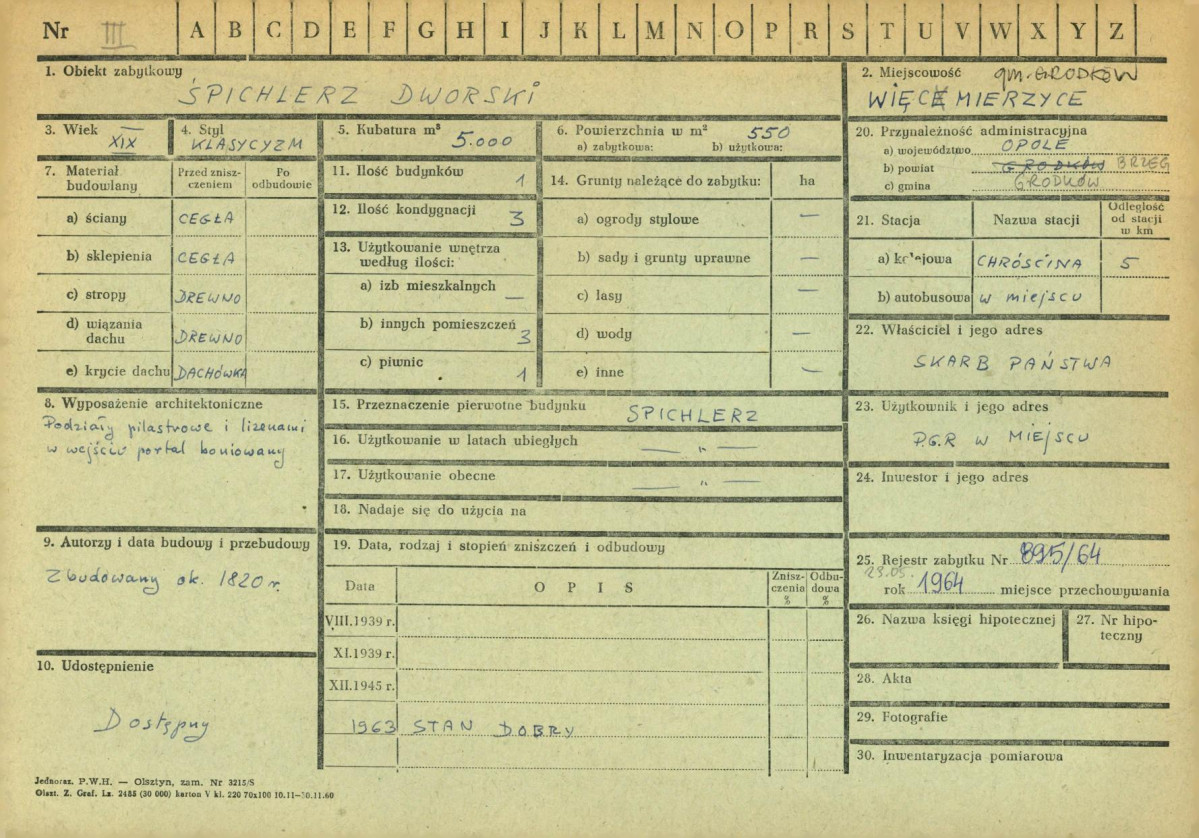 Nr III A B C D E F G H I J K L M N O P R S T U V W X Y Z
1. Obiekt zabytkowy
SPICHLERZ DWORSKI
2. Miejscowość gm. GRODKÓW
WIĘCMIERZYCE
3. Wiek
XIX
4. Styl
KLASYCYZM
5. Kubatura m³
5.000
6. Powierzchnia w m² 550
a) zabytkowa: b) użytkowa:
7. Materiał budowlany
Przed zniszczeniem
Po odbudowie
a) ściany CEGŁA
b) sklepienia CEGŁA
c) stropy DREWNO
d) wiązania dachu DREWNO
e) krycie dachu DACHÓWKA
8. Wyposażenie architektoniczne
Podziały pilastrowe i lizenami
w wejściu portal boniowany
9. Autorzy i data budowy i przebudowy
Zbudowany ok. 1820 r.
10. Udostępnienie
Dostępny
11. Ilość budynków 1
12. Ilość kondygnacji 3
13. Użytkowanie wnętrza
według ilości:
a) izb mieszkalnych —
b) innych pomieszczeń 3
c) piwnic 1
14. Grunty należące do zabytku: ha
a) ogrody stylowe —
b) sady i grunty uprawne —
c) lasy —
d) wody —
e) inne —
15. Przeznaczenie pierwotne budynku SPICHLERZ
16. Użytkowanie w latach ubiegłych — „ —
17. Użytkowanie obecne — „ —
18. Nadaje się do użycia na
19. Data, rodzaj i stopień zniszczeń i odbudowy
Data OPIS Zniszczenia % Odbudowa %
VIII.1939 r.
XI.1939 r.
XII.1945 r.
1963 STAN DOBRY
20. Przynależność administracyjna
a) województwo OPOLE
b) powiat GRODKÓW BRZEG
c) gmina GRODKÓW
21. Stacja Nazwa stacji Odległość od stacji w km
a) kolejowa CHRÓŚCINA 5
b) autobusowa w miejscu
22. Właściciel i jego adres
SKARB PAŃSTWA
23. Użytkownik i jego adres
P.G.R W MIEJSCU
24. Inwestor i jego adres
25. Rejestr zabytku Nr 895/64
23.05.
rok 1964 miejsce przechowywania
26. Nazwa księgi hipotecznej
27. Nr hipoteczny
28. Akta
29. Fotografie
30. Inwentaryzacja pomiarowa
Jednoraz. P.W.H. — Olsztyn, zam. Nr 3215/S
Olszt. Z. Graf. Lz. 2485 (30 000) karton V kl. 220 70x100 10.11—30.11.60